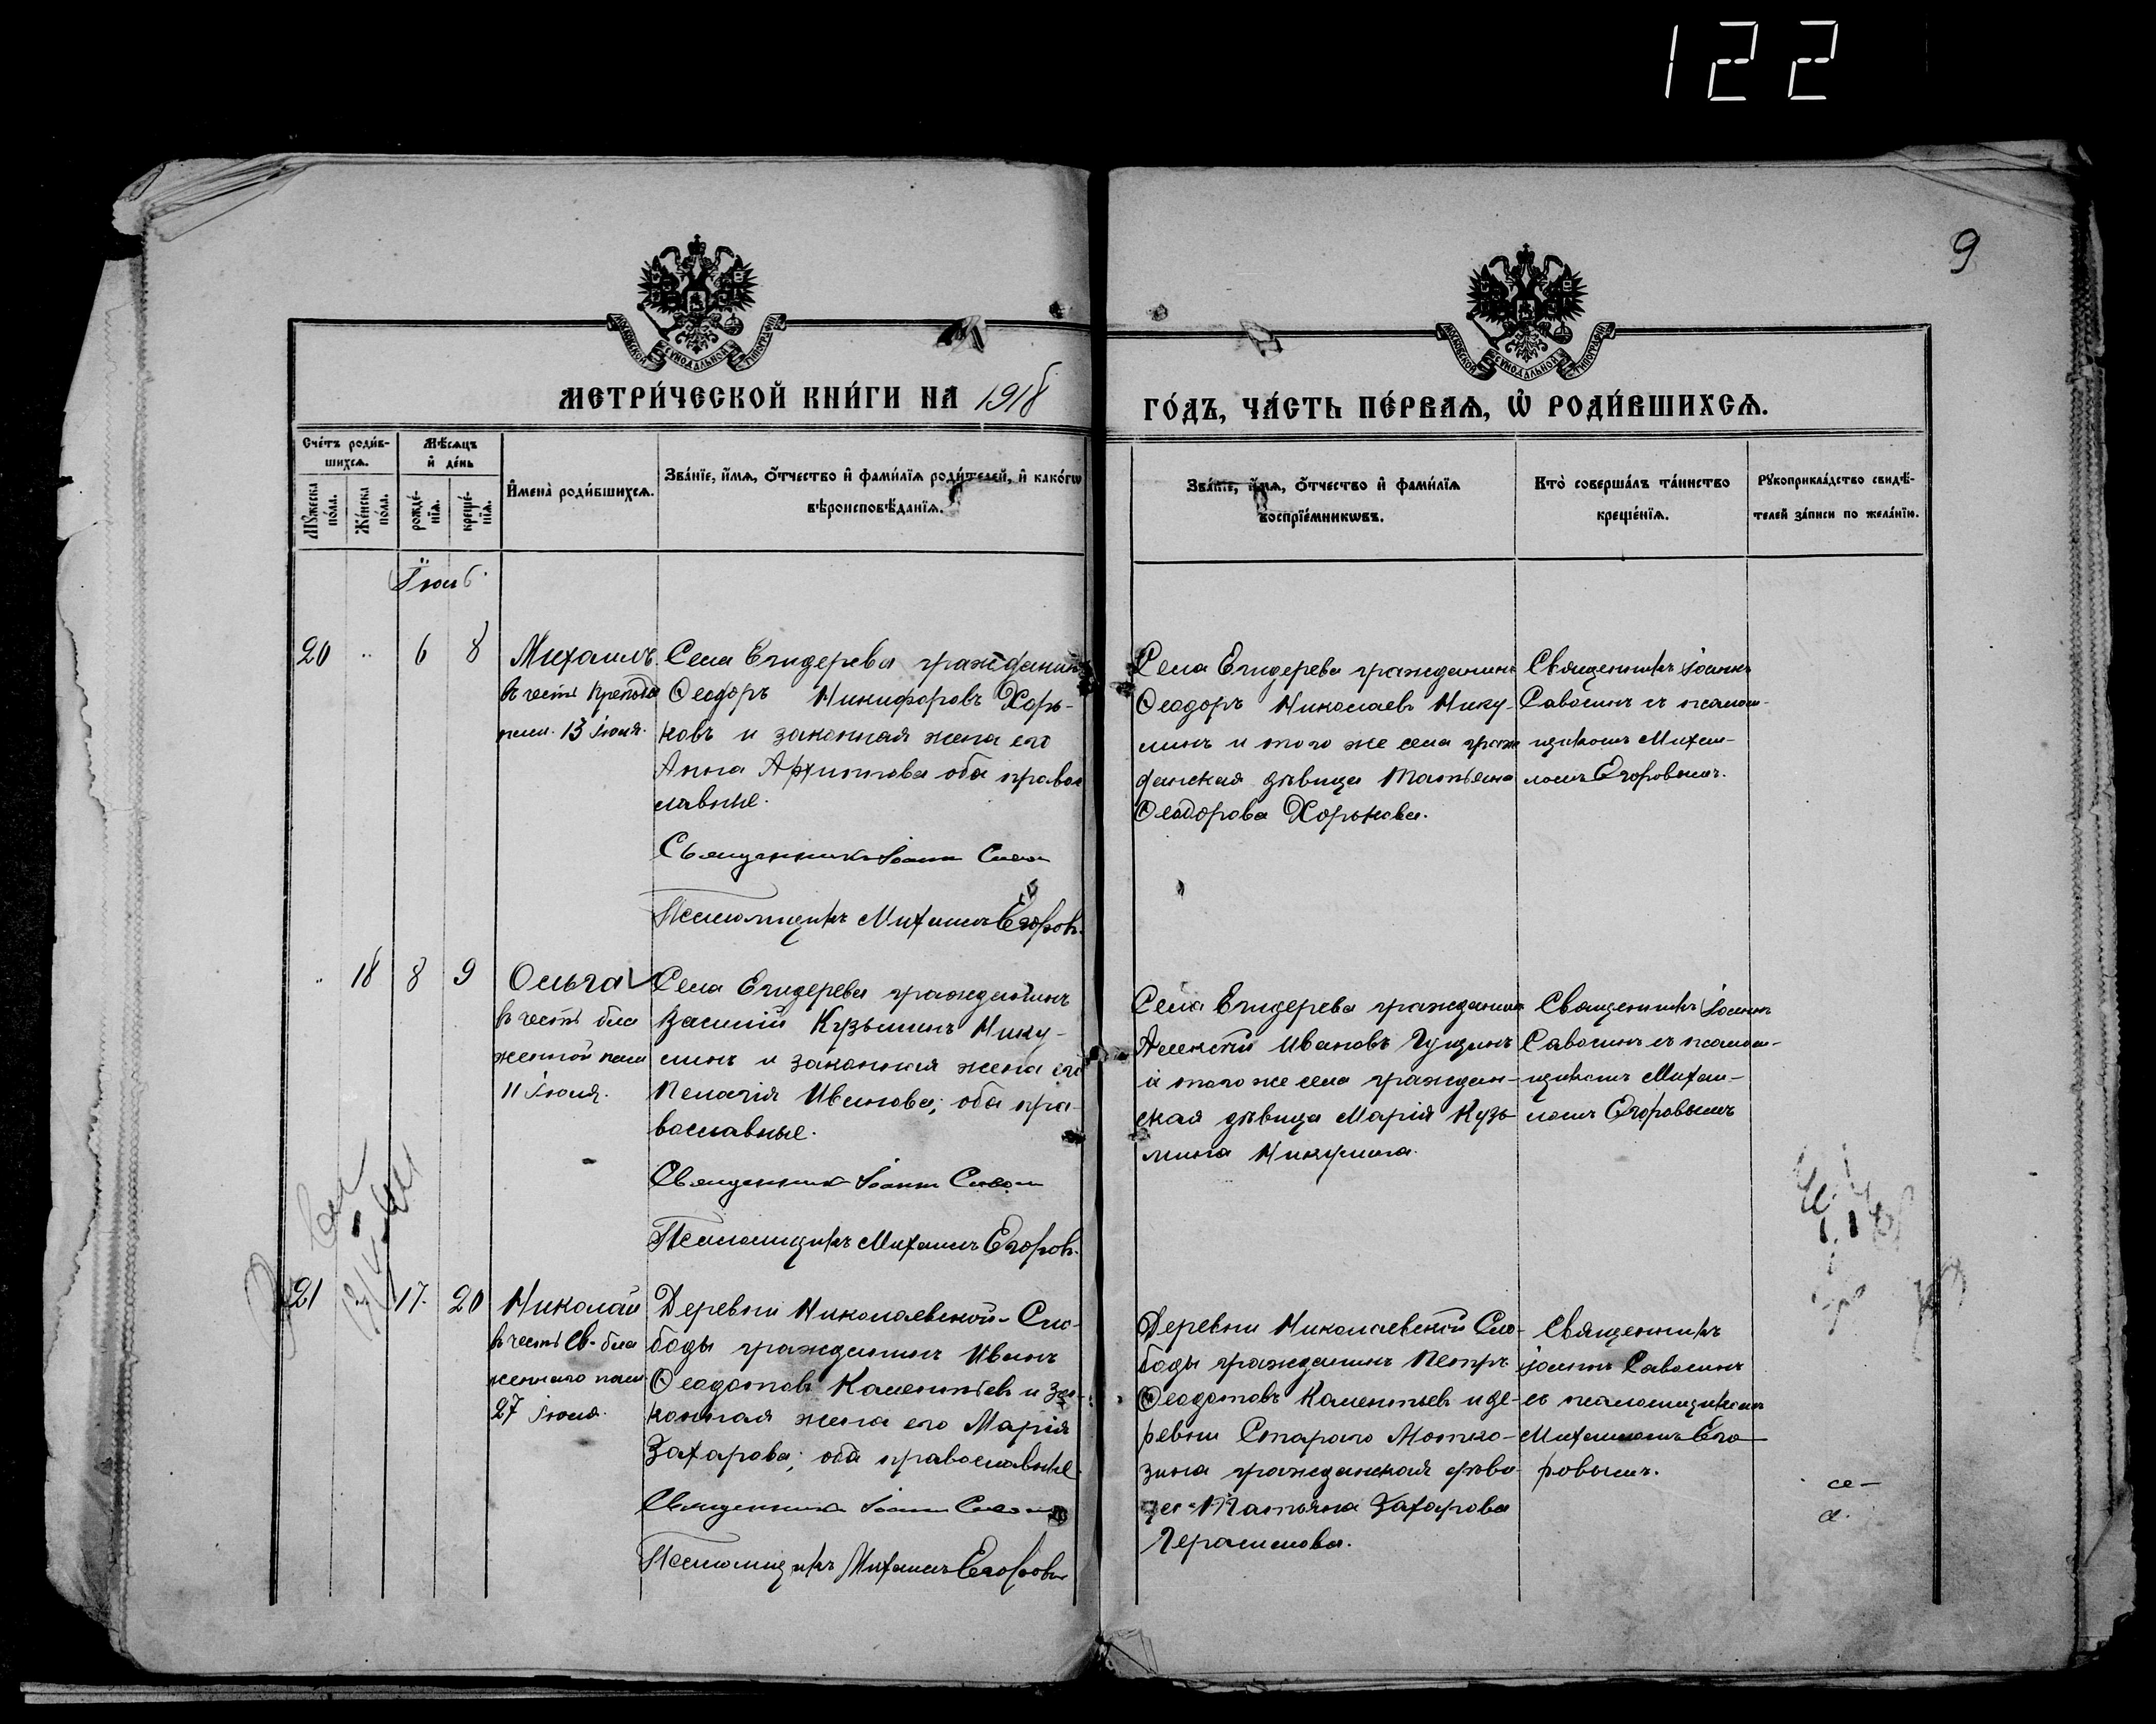 122
9
МОСКОВСКОЙ СѴНОДАЛЬНОЙ ТИПОГРАФІИ
МОСКОВСКОЙ СѴНОДАЛЬНОЙ ТИПОГРАФІИ
МЕТРИ́ЧЕСКОЙ КНИ́ГИ НА 1918
ГО́ДЪ, ЧА́СТЬ ПЕ́РВАѦ, Ѡ҆ РОДИ́ВШИХСѦ.
Сче́тъ роди́в-
шихсѧ.
Мѣ́сѧцъ
и҆ де́нь
Мꙋ́жеска по́ла.
Же́нска по́ла.
рожде́-
нїѧ.
креще́-
нїѧ.
И҆мена̀ роди́вшихсѧ.
Зва́нїе, и҆́мѧ, ѻ҆́тчество и҆ фами́лїѧ роди́телей, и҆ како́гѡ
вѣроисповѣ́данїѧ.
Зва́нїе, и҆́мѧ, ѻ҆́тчество и҆ фами́лїѧ
воспрїе́мникѡвъ.
Кто̀ соверша́лъ та́инство
креще́нїѧ.
Рꙋкоприкла́дство свидѣ́-
телей за́писи по жела́нїю.
20 " 6 8
Михаилъ
13 Іюня.
Села Егидерева гражданинъ
Ѳеодоръ Никифоровъ Хорь-
ковъ и законная жена его
Анна Архипова оба право
славные.
Священникъ Іоанн
Псаломщикъ Михаилъ Егоровъ.
Села Егидерева гражданинъ
Ѳеодоръ Николаевъ Нику-
линъ и того же села граж
данская дѣвица Татьяна
Ѳеодорова Хорькова.
Священникъ Іоаннъ
Савосинъ съ псалом-
щикомъ Михаи-
ломъ Егоровымъ.
" 18 8 9
Ольга
въ честь бла
женной пам
11 Іюля.
Села Егидерева гражданинъ
Василій Кузьминъ Нику-
линъ и законная жена его
Пелагія Иванова; оба пра-
вославные.
Священник Іоанн
Псаломщикъ Михаилъ Егоровъ.
Села Егидерева гражданинъ
Алексѣй Ивановъ Гущинъ
и того же села граждан-
ская дѣвица Марія Кузь-
мина Никулина.
Священникъ Іоаннъ
Савосинъ съ псалом-
щикомъ Михаи-
ломъ Егоровымъ
21 17. 20
Николай
въ честь Св. бла
женнаго пам.
27 Іюля.
Деревни Николаевской-Сло-
боды гражданинъ Иванъ
Ѳеодотовъ Калентьевъ и за-
конная жена его Марія
Захарова; оба православные.
Священникъ Іоанн
Псаломщикъ Михаилъ Егоровъ
Деревни Николаевской Сло-
боды гражданинъ Петръ
Ѳеодотовъ Калентьевъ и де-
ревни Стараго
зина гражданская дѣви
ца Татьяна Захарова
Герасимова.
Священникъ
Іоаннъ Савосинъ
съ псаломщикомъ
Михаиломъ Его
ровымъ.